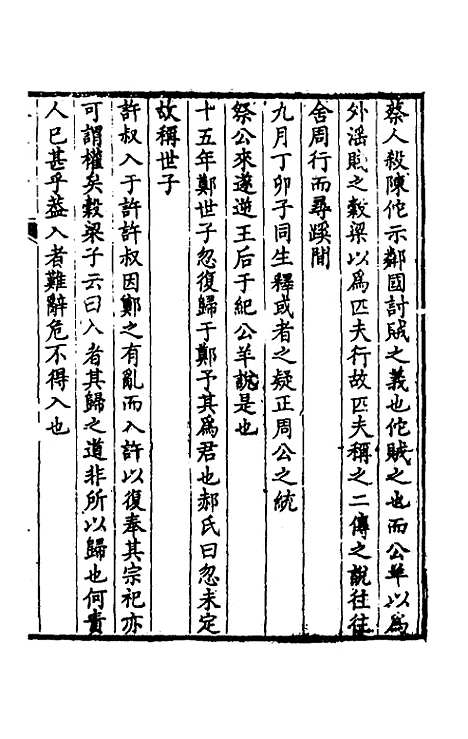 蔡人殺陳佗示鄰國討賊之義也佗賊之也而公羊以爲
外淫貶之穀梁以爲匹夫行故匹夫稱之二傳之說往往
舍周行而尋蹊間
九月丁卯子同生釋或者之疑正周公之統
祭公來遂逆王后于紀公羊說是也
十五年鄭世子忽復歸于鄭予其爲君也郝氏曰忽未定
故稱世子
許叔入于許許叔因鄭之有亂而入許以復奉其宗祀亦
可謂權矣穀梁子云曰入者其歸之道非所以歸也何責
人已甚乎葢入者難辭危不得入也